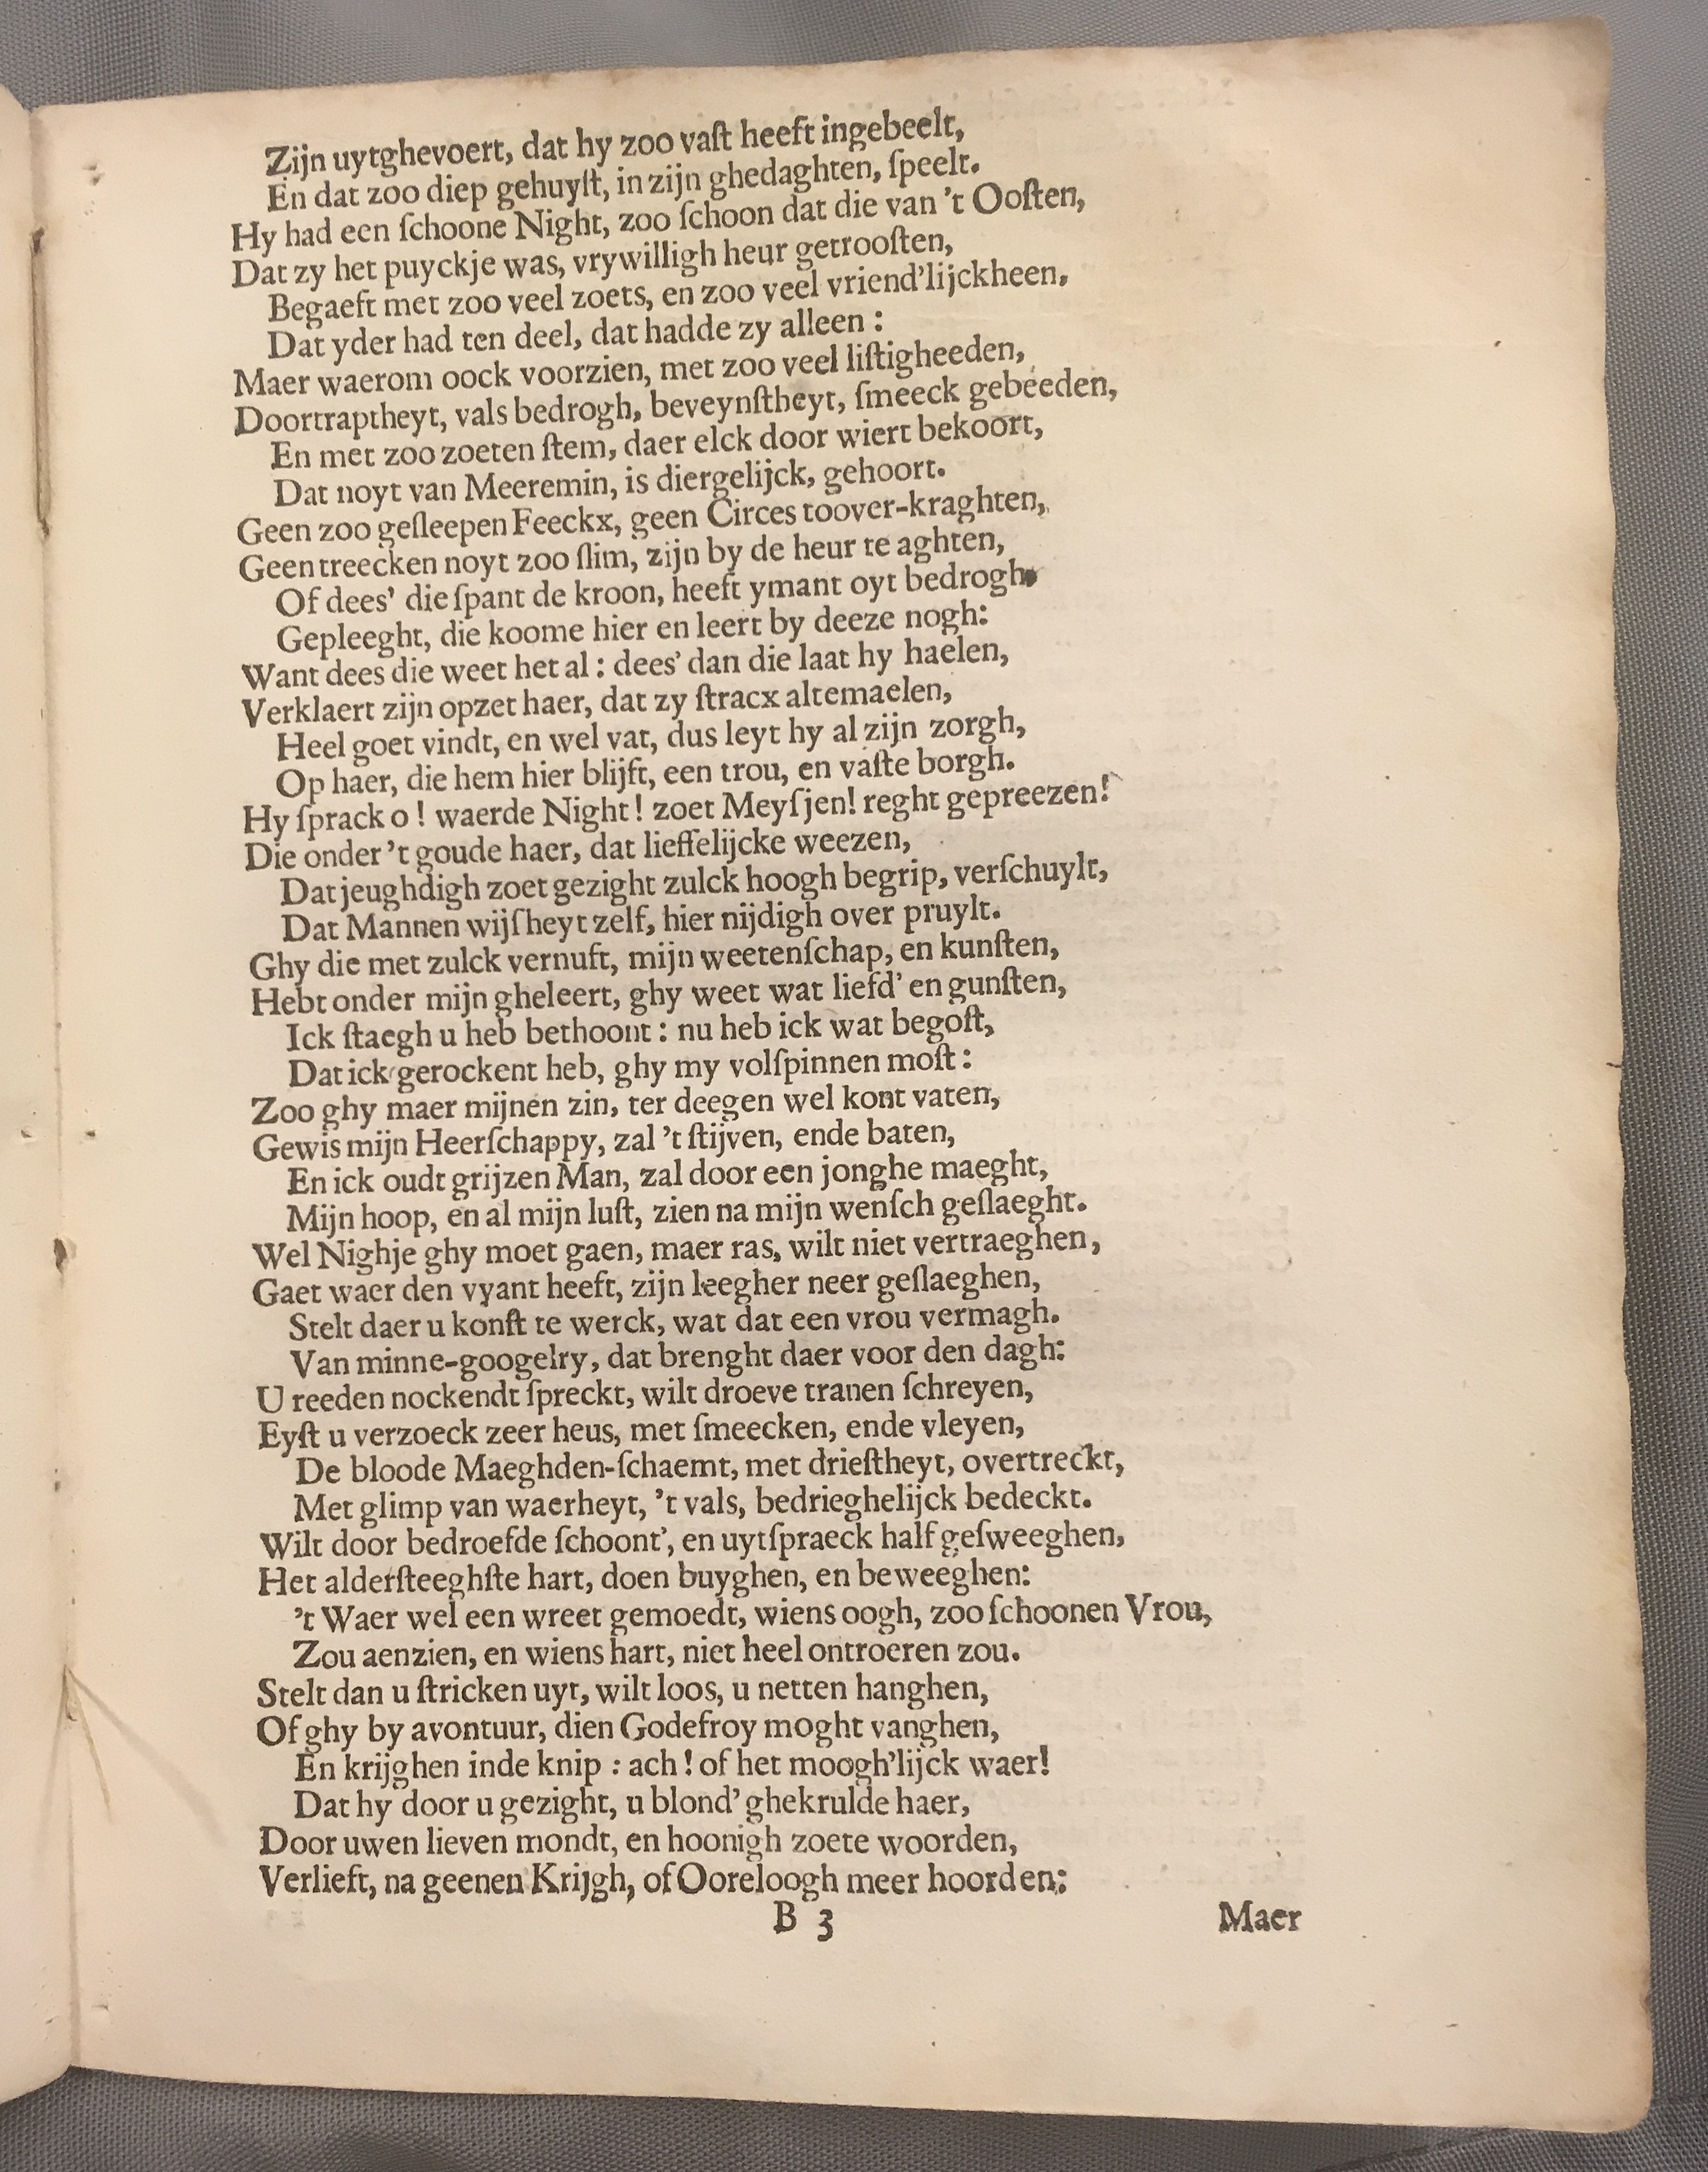 Zijn uytghevoert, dat hy zoo vaſt heeft ingebeelt,
En dat zoo diep gehuyſt, in zijn ghedaghten, ſpeelt.
Hy had een ſchoone Night, zoo ſchoon dat die van 't Ooſten,
Dat zy het puyckje was, vrywilligh heur getrooſten,
Begaeft met zoo veel zoets, en zoo veel vriend'lijckheen,
Dat yder had ten deel, dat hadde zy alleen :
Maer waerom oock voorzien, met zoo veel liſtigheeden,
Doortraptheyt, vals bedrogh, beveynſtheyt, ſmeeck gebeeden,
En met zoo zoeten ſtem, daer elck door wiert bekoort,
Dat noyt van Meeremin, is diergelijck, gehoort.
Geen zoo geſleepen Feeckx, geen Circes toover-kraghten,
Geen treecken noyt zoo ſlim, zijn by de heur te aghten,
Of dees' die ſpant de kroon, heeft ymant oyt bedrogh
Gepleeght, die koome hier en leert by deeze nogh:
Want dees die weet het al : dees' dan die laat hy haelen,
Verklaert zijn opzet haer, dat zy ſtracx altemaelen,
Heel goet vindt, en wel vat, dus leyt hy al zijn zorgh,
Op haer, die hem hier blijft, een trou, en vaſte borgh.
Hy ſprack o ! waerde Night ! zoet Meyſjen! reght gepreezen!
Die onder 't goude haer, dat lieffelijcke weezen,
Dat jeughdigh zoet gezight zulck hoogh begrip, verſchuylt,
Dat Mannen wijſheyt zelf, hier nijdigh over pruylt.
Ghy die met zulck vernuft, mijn weetenſchap, en kunſten,
Hebt onder mijn gheleert, ghy weet wat liefd' en gunſten,
Ick ſtaegh u heb bethoont : nu heb ick wat begoſt,
Dat ick gerockent heb, ghy my volſpinnen moſt :
Zoo ghy maer mijnen zin, ter deegen wel kont vaten,
Gewis mijn Heerſchappy, zal 't ſtijven, ende baten,
En ick oudt grijzen Man, zal door een jonghe maeght,
Mijn hoop, en al mijn luſt, zien na mijn wenſch geſlaeght.
Wel Nighje ghy moet gaen, maer ras, wilt niet vertraeghen,
Gaet waer den vyant heeft, zijn leegher neer geſlaeghen,
Stelt daer u konſt te werck, wat dat een vrou vermagh.
Van minne-googelry, dat brenght daer voor den dagh:
U reeden nockendt ſpreckt, wilt droeve tranen ſchreyen,
Eyſt u verzoeck zeer heus, met ſmeecken, ende vleyen,
De bloode Maeghden-ſchaemt, met drieſtheyt, overtreckt,
Met glimp van waerheyt, 't vals, bedrieghelijck bedeckt.
Wilt door bedroefde ſchoont', en uytſpraeck half geſweeghen,
Het alderſteeghſte hart, doen buyghen, en beweeghen:
't Waer wel een wreet gemoedt, wiens oogh, zoo ſchoonen Vrou,
Zou aenzien, en wiens hart, niet heel ontroeren zou.
Stelt dan u ſtricken uyt, wilt loos, u netten hanghen,
Of ghy by avontuur, dien Godefroy moght vanghen,
En krijghen inde knip : ach ! of het moogh'lijck waer!
Dat hy door u gezight, u blond' ghekrulde haer,
Door uwen lieven mondt, en hoonigh zoete woorden,
Verlieft, na geenen Krijgh, of Ooreloogh meer hoorden:
B 3 Maer